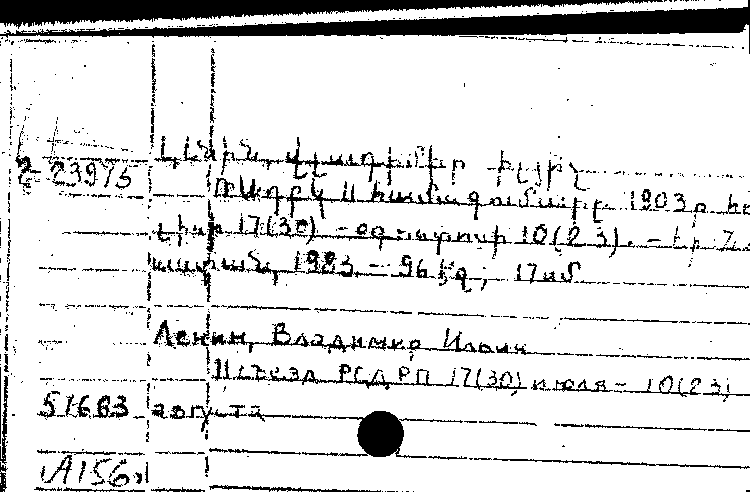 Լենին, Վլադիմիր Իլյիչ
2-23975
ՌՍԴԲԿ II համագումարը 1903թ. հու
լիսի 17(30) - օգոստոսի 10(23). - Եր.
աստան, 1983. - 96 էջ; 17սմ
Ленин, Владимир Ильич
II съезд РСДРП 17(30) июля - 10(23)
51683 августа
А156.